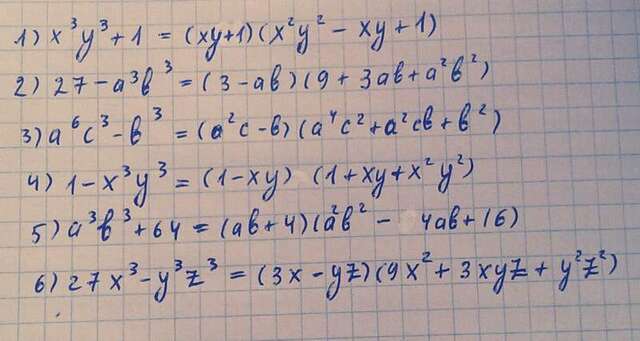 1) x³y³ + 1 = (xy+1)(x²y² − xy + 1)
2) 27 − a³b³ = (3 − ab)(9 + 3ab + a²b²)
3) a⁶c³ − b³ = (a²c − b)(a⁴c² + a²cb + b²)
4) 1 − x³y³ = (1 − xy) (1 + xy + x²y²)
5) a³b³ + 64 = (ab + 4)(a²b² − 4ab + 16)
6) 27x³ − y³z³ = (3x − yz)(9x² + 3xyz + y²z²)